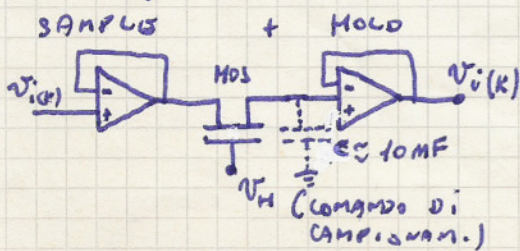 SAMPLE + HOLD
vi(t) - + MOS - + vi(K)
C ≈ 10 MF
VH (COMANDO DI
CAMPIONAM.)